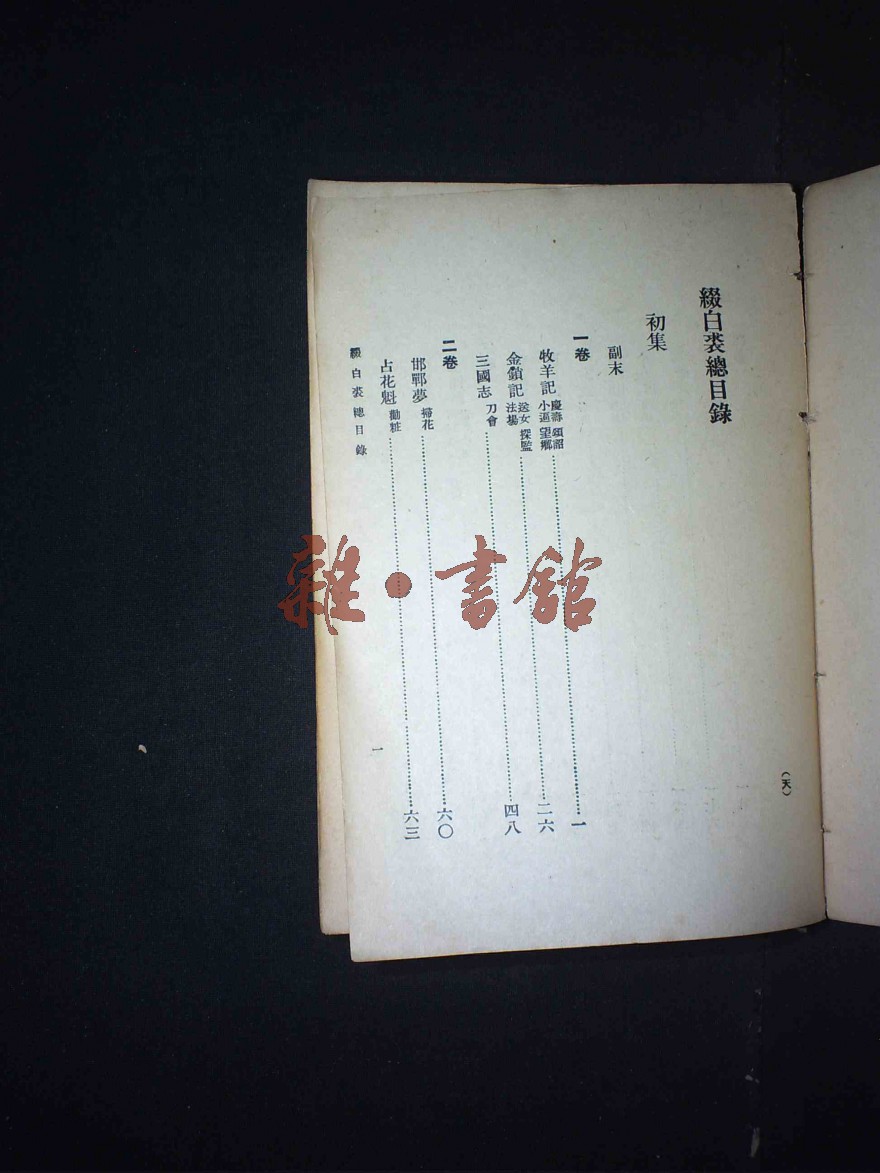 綴白裘總目錄
初集
副末
一卷
牧羊記 慶壽 頒詔 小逼 望鄉……一
金鎖記 送女 探監 法場……二六
三國志 刀會……四八
二卷
邯鄲夢 掃花……六〇
占花魁 勸粧……六三
綴白裘總目錄
一
(天)
雜·書館